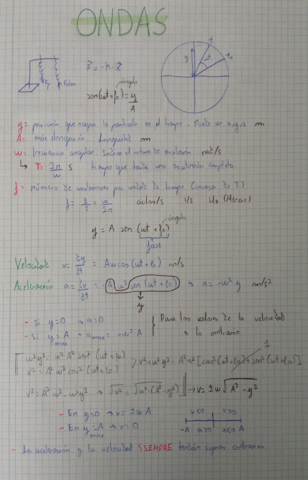 ONDAS
F⃗ = -K · x⃗
sen(ωt+φ₀) = y/A
ángulo
y = posición que ocupa la partícula en el tiempo. m
A = máx elongación. Longitud m
ω = frecuencia angular. rad/s
T = 2π/ω s tiempo que tarda una oscilación completa
f = número de oscilaciones por unidad de tiempo (inversa de T)
f = 1/T = ω/2π ciclos/s 1/s Hz
ángulo
y = A sen (ωt + φ₀)
fase
Velocidad v = ∂y/∂t = Aω cos(ωt+φ₀) m/s
Aceleración a = ∂v/∂t = -Aω² sen(ωt+φ₀) → a = -ω² y m/s²
y
- Si y=0 → a=0
- Si y=A → a máx = -ω² A
Para los valores de la velocidad
es lo contrario.
ω²y² = ω²A² sen²(ωt+φ₀)
v² = A²ω² cos²(ωt+φ₀)
v²+ω²y² = A²ω² [cos²(ωt+φ₀)+sen²(ωt+φ₀)]
1
v² = A²ω² - ω²y² → √v² = √ω²(A²-y²) → v = ±ω√A²-y²
- En y=0 → v = ±ωA
- En y máx=A → v=0
v<0 v>0
-A a>0 a<0 A
- La aceleración y la velocidad SIEMPRE tendrán signos contrarios